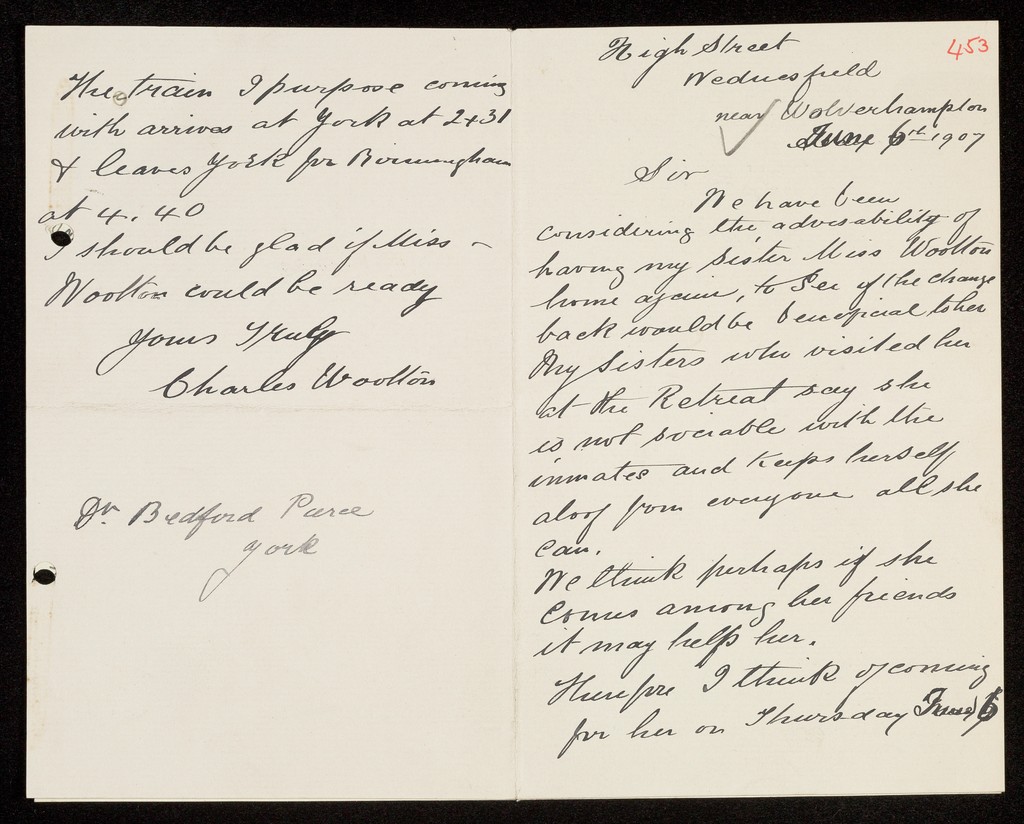 453
High Street
Wednesfield
near Wolverhampton
June 6th 1907
Sir
We have been
considering the advisability of
having my sister Miss Wootton
home again, to See if the change
back would be beneficial to her
My Sisters who visited her
at the Retreat say she
is not sociable with the
inmates and keeps herself
aloof from everyone all she
can.
We think perhaps if she
comes among her friends
it may help her.
Therefore I think of coming
for her on Thursday June 6
The train I purpose coming
with arrives at York at 2+31
& leaves York for Birmingham
at 4.40
I should be glad if Miss -
Wootton could be ready
Yours Truly
Charles Wootton
Dr Bedford Pierce
York